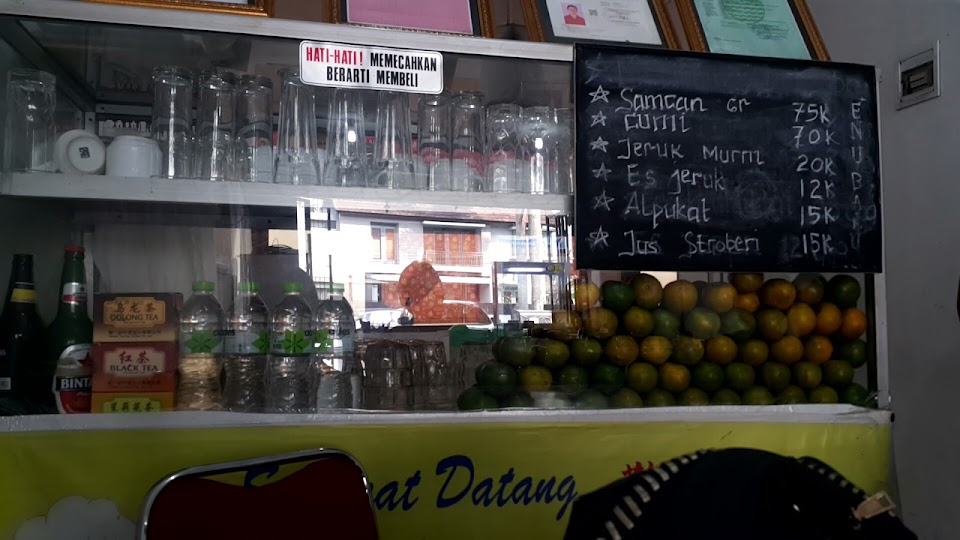 HATI-HATI! MEMECAHKAN
BERARTI MEMBELI
Samcan Gr 75K
Cumi 70K
Jeruk Murni 20K
Es Jeruk 12K
Alpukat 15K
Jus Stroberi 15K
ENU BARU
乌龙茶
OOLONG TEA
红茶
BLACK TEA
茉莉花茶
BINTA
at Datang